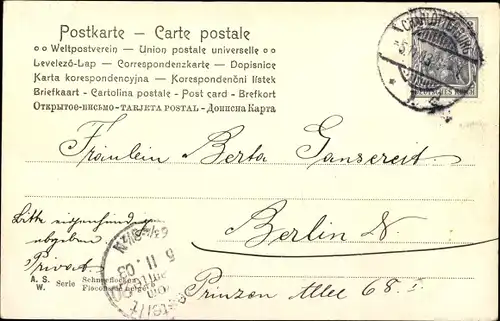 Postkarte – Carte postale
Weltpostverein – Union postale universelle
Levelező-Lap — Correspondenzkarte — Dopisnice
Karta korespondencyjna — Korespondenční lístek
Briefkaart - Cartolina postale - Post card - Brefkort
Открытое-письмо-TARJETA POSTAL-Дописна Карта
CHARLOTTENBURG
DEUTSCHES REICH
Fräulein Berta Ganzereit
Berlin N.
Prinzen Allee 68 I
Bitte eigenhändig
abgeben
Privat
A. S. W. Serie
Schneeflocken
Floconse neige
5 11 03